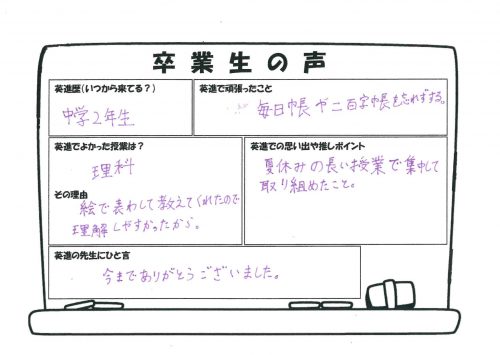 卒業生の声
英進歴(いつから来てる?)
中学2年生
英進で頑張ったこと
毎日帳や二百字帳を忘れずする。
英進でよかった授業は?
理科
その理由
絵で表わして教えてくれたので
理解しやすかったから。
英進での思い出や推しポイント
夏休みの長い授業で集中して
取り組めたこと。
英進の先生にひと言
今までありがとうございました。